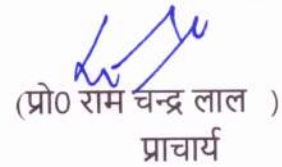 (प्रो0 राम चन्द्र लाल )
प्राचार्य